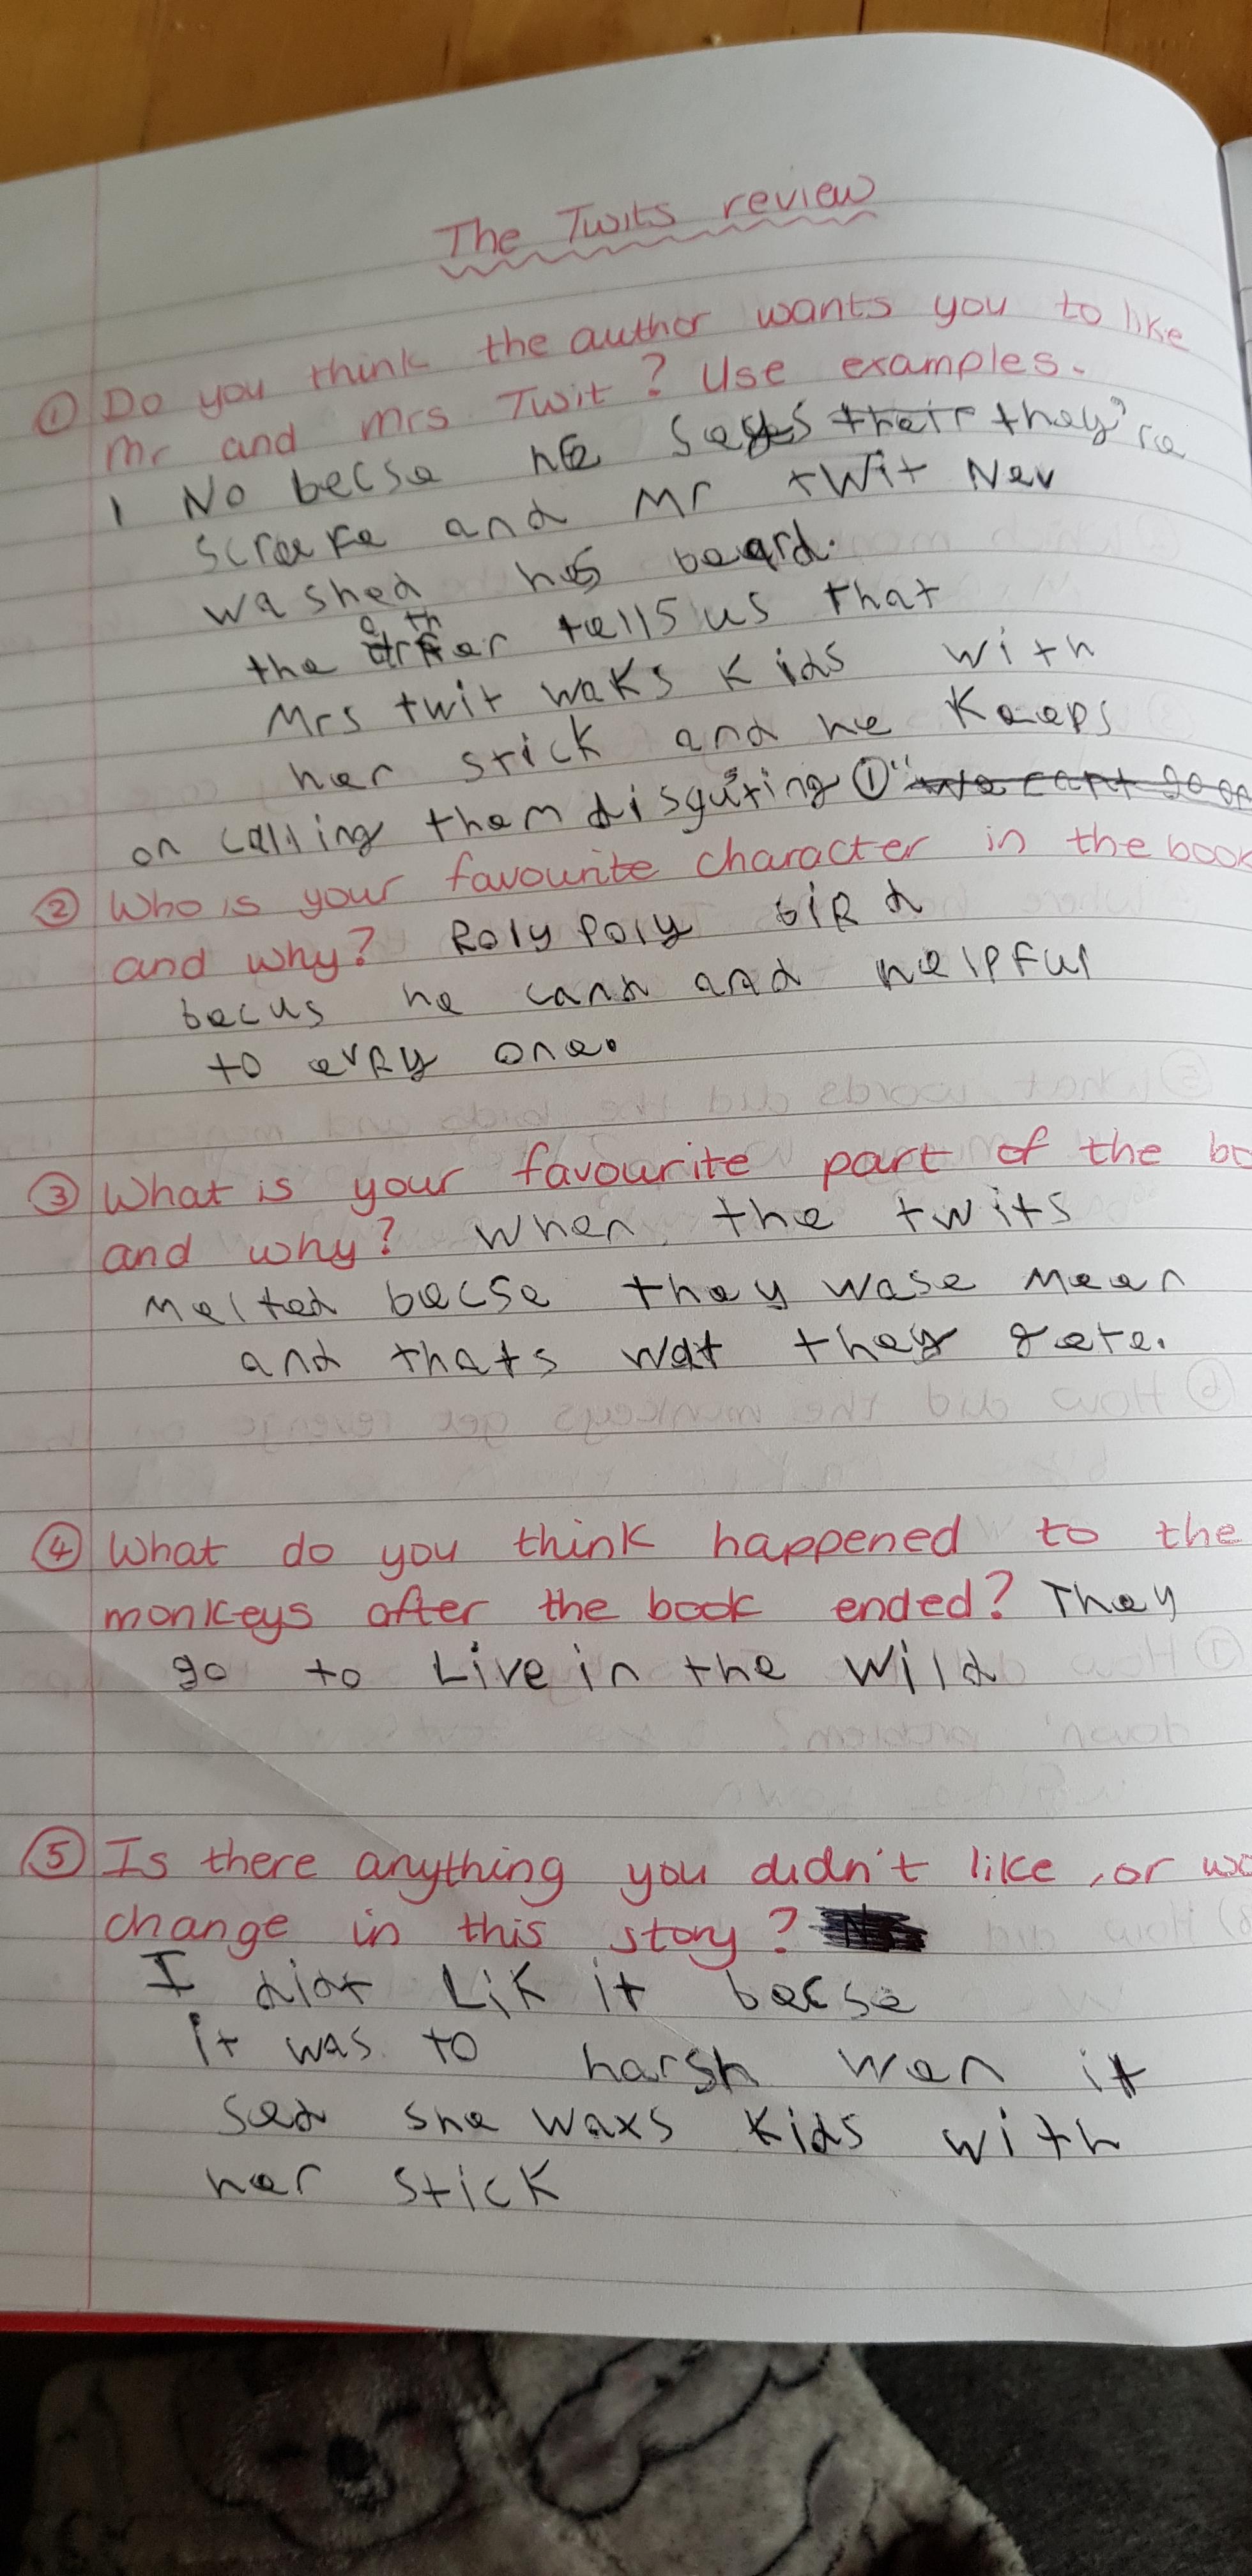 The Twits review
① Do you think the author wants you to like
Mr and Mrs Twit? Use examples.
1 No becse he says their they're
and Mr twit Nev
washed his beard.
the tells us that
Mrs twit waks kids with
her stick and he Keeps
on calling them disgusting ① "we cant go on
② Who is your favourite character in the book
and why? Roly Poly biRd
becus he and helpful
to evRy one.
③ What is your favourite part of the bo
and why? when the twits
Melted becse they wase Mean
and thats wat they gete.
④ What do you think happened to the
monkeys after the book ended? They
go to Live in the wild
⑤ Is there anything you didn't like, or wo
change in this story?
I didt Lik it becse
it was to harsh wen it
sed she waxs kids with
her stick